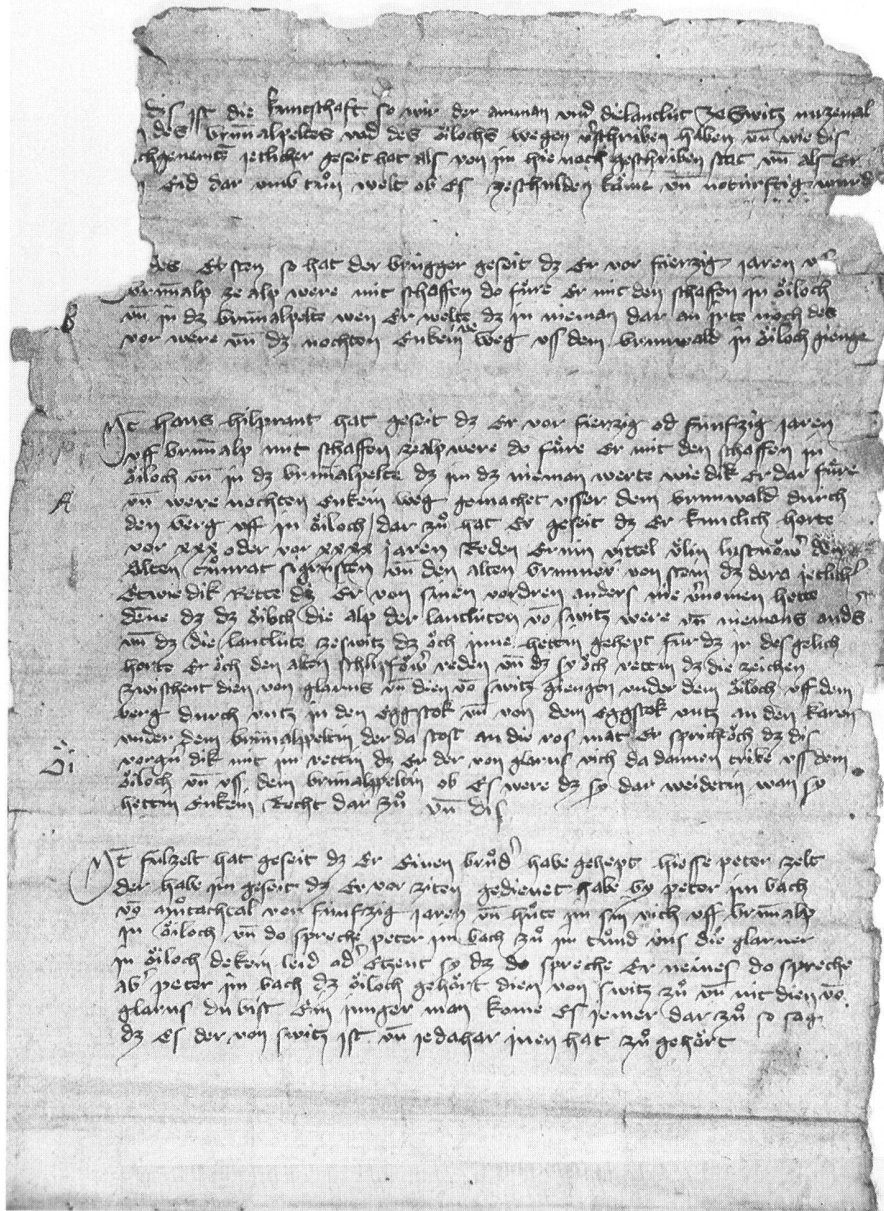 dis ist die kuntschaft so wir der amman vnd die lantlút ze Switz nuzemal
des brúnalpeltes vnd des öilochs wegen v̓schriben haben vn̄ wie dis
chgenemt̄ jetlicher geseit hat als von im hie noch geschriben stat vn̄ als Er
Eid dar vmb tůn welt ob Es ze schulden käme vn̄ notúrftig wurd
des Ersten so hat der brúgger geseit dz Er vor fierzig jaren
brúnalp ze alp were mit schaffen do fůre Er mit den schaffen in öiloch
vn̄ in dz brúnalpelte wen Er welte dz in nieman dar an jrte noch des
vor were vn̄ dz nochten Enkein we weg vs dem brunwald in öiloch gienge
B
Jt̄ hans hilprant hat geseit dz Er vor fierzig od fúnfzig jaren
vff brúnalp mit schaffen ze alp were do fůre Er mit den schaffen in
öiloch vn̄ in dz brúnalpelte dz im dz nieman werte wie dik Er dar fůre
A
vn̄ were nochten Enkein weg gemachet vsser dem brunwald durch
den berg vff in öiloch dar zů hat Er geseit dz Er kuntlich horte
vor xxx oder vor xxxx jaren Reden Ernin vittel ůlin lustnöw̓ den
Alten cůnrat sigristen vn̄ den alten brunner von stein dz dera jetlich̓
Etwie dik Rette dz Er von sinen vordren anders nie v̓nomen hette
dēne dz dz öiloch die alp der lantlúten vō switz were vn̄ niemans and̓s
vn̄ dz die lantlúte ze switz dz öch inne hettin gehept fúr dz ir des gelich
horte Er öch den alten schlipföw̓ reden vn̄ dz sy öch rettin dz die zeichen
zwischent dien von glarus vn̄ dien vō switz giengen vnder dem öiloch vf dem
berg durch vntz in den Eggstok vn̄ von dem Eggstok vntz an den karen
vnder dem brúnalpeltin der da stost an die ros mat Er sprichöch dz dis
öi
vorgn̄ dik mit im rettin dz Er der von glarus vich da dannen tribe vs dem
öiloch vn̄ vss dem brúnalpeltin ob Es were dz sy dar weidetin wan sy
hettin Enkein Recht dar zů vn̄ dis
Jt̄ fúlzelt hat geseit dz Er Einen brůd̓ habe gehept hiesse peter zelt
der habe im geseit dz Er vor ziten gedienet habe by peter im bach
vō můtachtal vor fúnfzig jaren vn̄ hůte im sin vich vff brúnalp
in öiloch vn̄ do spreche peter im bach zů im tůnd úns die glarner
in öiloch dekein leid od̓ Etzent sy dz do spreche Er neines do spreche
ab̓ peter im bach dz öiloch gehört dien von switz zů vn̄ nit dien vō
glarus du bist Ein junger man kome Es jemer dar zů so sag
dz Es der von switz ist vn̄ je dahar inen hat zů gehört